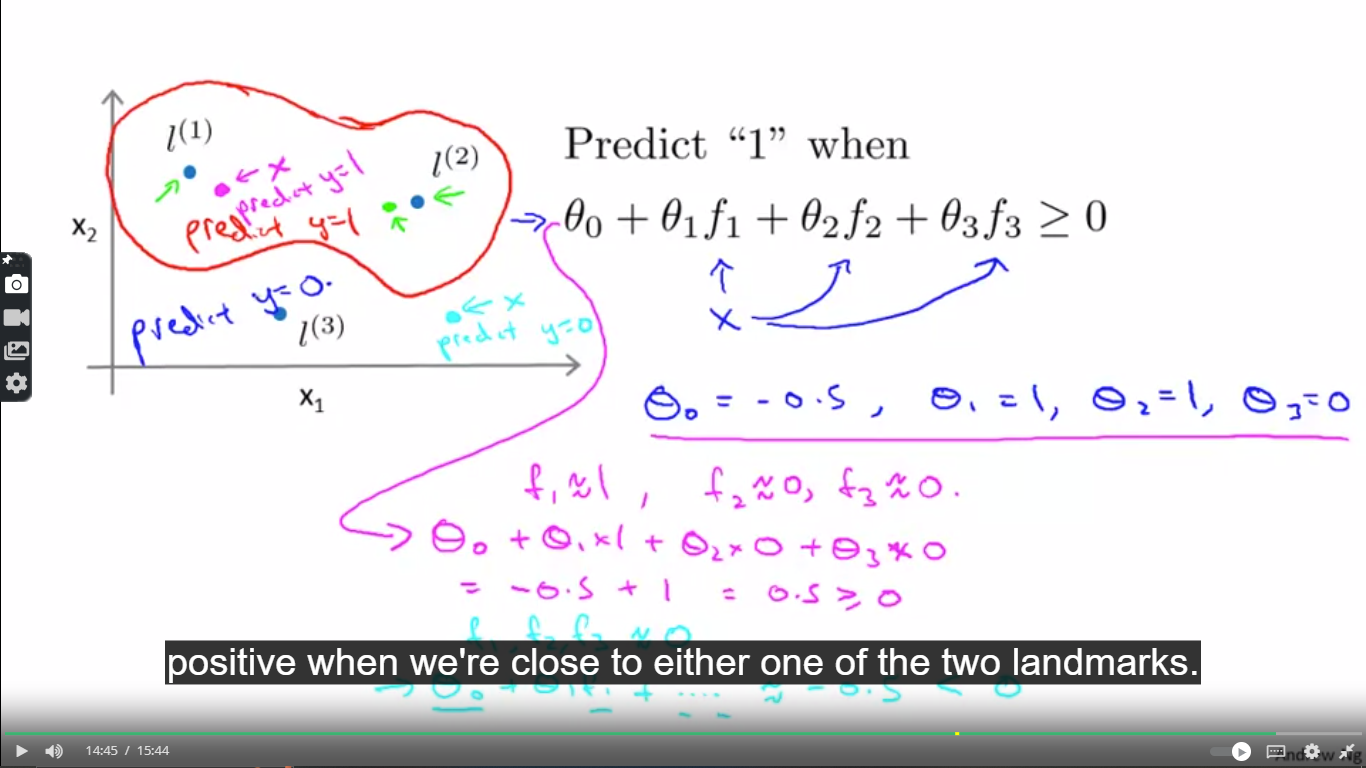 l⁽¹⁾
← x
predict y=1
l⁽²⁾
predict y=1
x₂
predict y=0.
l⁽³⁾
← x
predict y=0
x₁
Predict “1” when
θ₀ + θ₁f₁ + θ₂f₂ + θ₃f₃ ≥ 0
x
θ₀ = -0.5, θ₁ = 1, θ₂ = 1, θ₃ = 0
f₁ ≈ 1, f₂ ≈ 0, f₃ ≈ 0.
θ₀ + θ₁×1 + θ₂×0 + θ₃×0
= -0.5 + 1 = 0.5 ≥ 0
f₁, f₂, f₃ ≈ 0
positive when we're close to either one of the two landmarks.
→ θ₀ + θ₁f₁ + .... ≈ -0.5 < 0
14:45 / 15:44
Andrew Ng